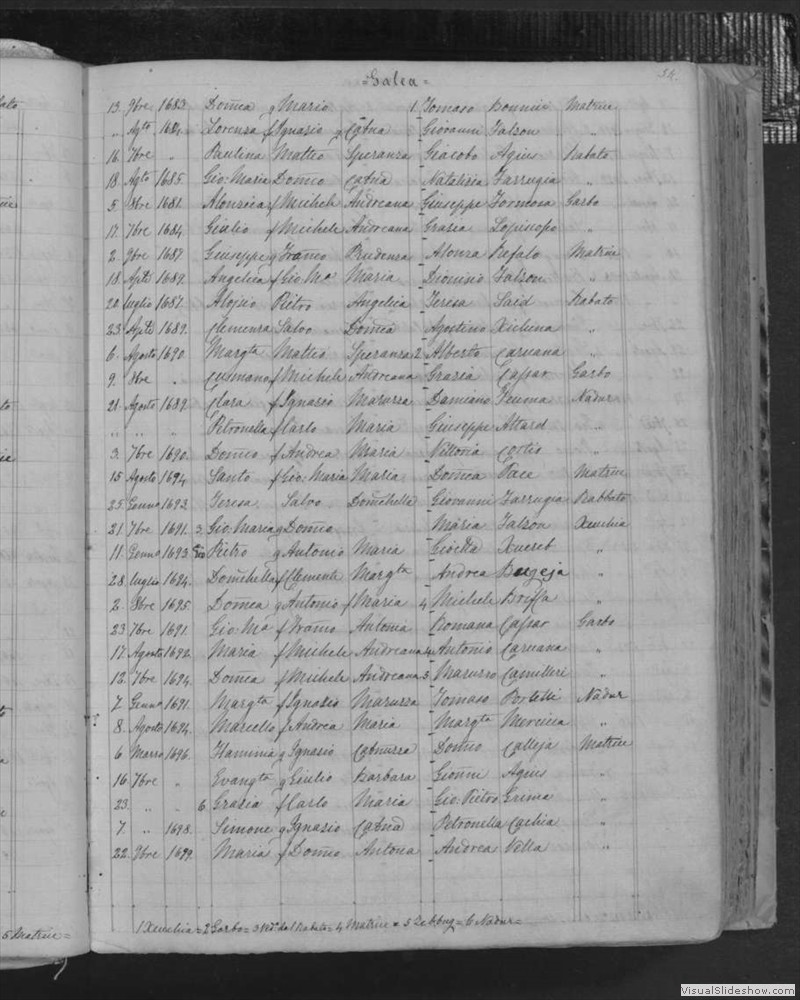 =Galea=
54.
13. 9bre 1683. Domca q Mario 1 Tomaso Bonnici Matrice
„ Agto 1684. Lorenza f Ignazio q Catna Giovanni Falzon „
16. 7bre „ Paulina Matteo Speranza Giacobo Agius Rabato
18. Agto 1685. Gio: Maria Domco Catna Natalizia Farrugia „
5. 8bre 1681. Alonsica f Michele Andreana Giuseppe Formosa Garbo
17. 7bre 1684. Giulio f Michele Andreana Grazia „
2. 9bre 1687. Giuseppe q Franco Prudenza Alonza Refalo Matrice
18. Aple 1689. Angelica f Gio: Ma Maria Dionisio Falzon „
20. luglio 1687. Aloysio Pietro Angelica Teresa Said Rabato
23. Aple 1689. Clemenza Salvo Domca Agostino Xiberra „
6. Agosto 1690. Margta Matteo Speranza 2 Alberto Caruana „
9. 8bre „ Cusmano f Michele Andreana Grazia Caspar Garbo
21. Agosto 1689. Clara f Ignazio Maruzza Damiano Nadur
„ „ „ Petronella f Carlo Maria Giuseppe Attard „
3. 7bre 1690. Domco f Andrea Maria Vittoria Cortis „
15. Agosto 1694. Santo f Gio: Maria Maria Domca Pace Matrice
25. Genno 1693. Teresa Salvo Domchella Giovanni Farrugia Rabbato
21. 7bre 1691. 3 Gio: Maria q Domco Maria Falzon Xeuchia
11. Genno 1693. Pietro q Antonio Maria Xuereb „
28. luglio 1694. Domchella f Clemente Margta Andrea Bugeja „
2. 8bre 1695. Domca q Antonio f Maria 4 Michele Briffa „
23. 7bre 1691. Gio: Ma f Franco Antonia Romana Caspar Garbo
17. Agosto 1692. Maria f Michele Andreana 4 Antonio Caruana „
12. 7bre 1694. Domca f Michele Andreana 5 Maruzzo Camilleri „
7. Genno 1691. Margta f Ignazio Maruzza Tomaso Portelli Nadur
8. Agosto 1694. Marcello f Andrea Maria Margta Mercieca „
6. Marzo 1696. Flaminia q Ignazio Catnuzza Domco Calleja Matrice
16. 7bre „ Evangta q Giulio Barbara Gionni Agius „
23. „ „ 6 Grazia f Carlo Maria Gio: Pietro Grima „
7. „ 1698. Simone q Ignazio Catna Petronella Cachia „
22. 9bre 1699. Maria f Domco Antona Andrea Vella „
1 Xeuchia = 2 Garbo = 3 Rabato = 4 Matrice = 5 Zebbug = 6 Nadur =
5 Matrice =
VisualSlideshow.com